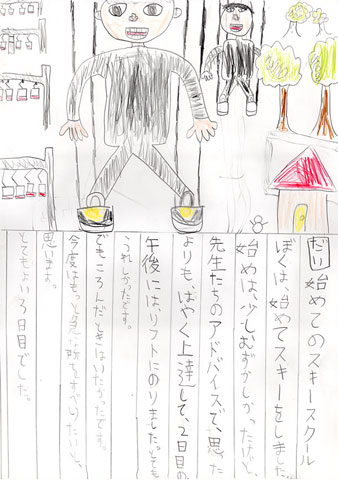 だい 始めてのスキースクール
ぼくは、始めてスキーをしました。
始めは、少しむずかしかったけど、
先生たちのアドバイスで、思った
よりも、はやく上達して、2日目の
午後には、リフトにのりました。とても
うれしかったです。
でもころんだときはいたかったです。
今度はもっと急な所をすべりたいと、
思います。
とてもよい3日目でした。